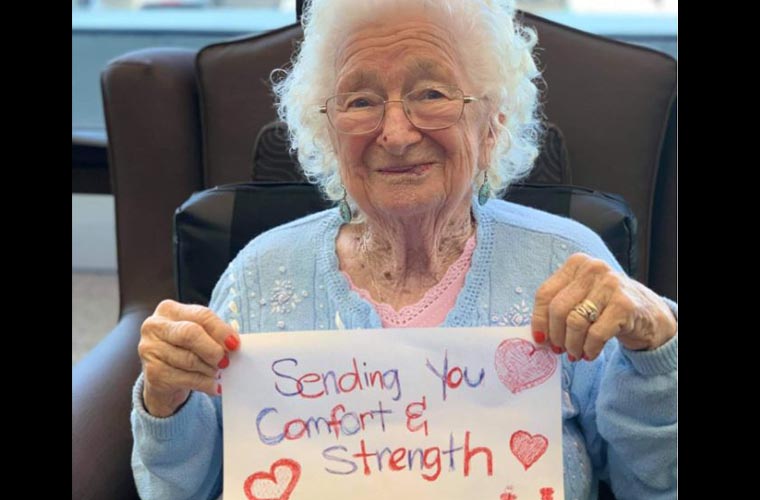 Sending You
Comfort &
Strength